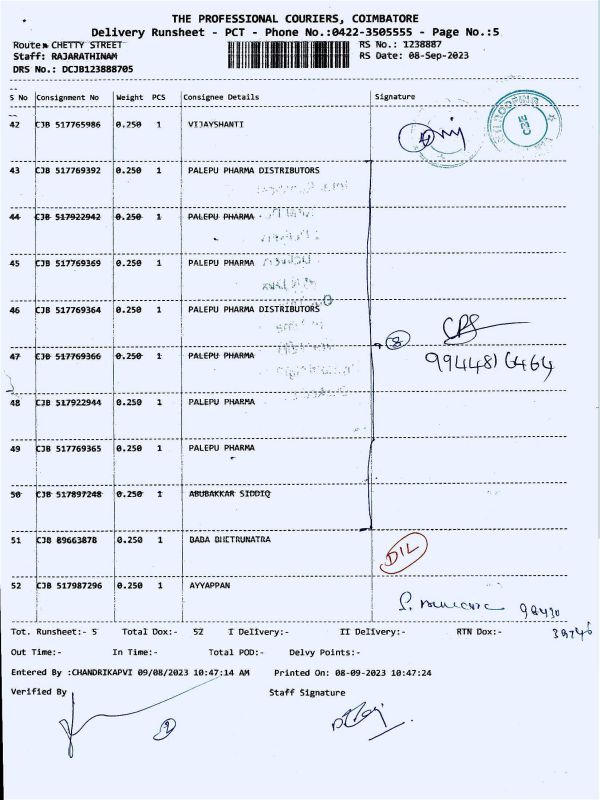 THE PROFESSIONAL COURIERS, COIMBATORE
Delivery Runsheet - PCT - Phone No.:0422-3505555 - Page No.:5
Route: CHETTY STREET RS No.: 1238887
Staff: RAJARATHINAM RS Date: 08-Sep-2023
DRS No.: DCJB123888705
S No Consignment No Weight PCS Consignee Details Signature
42 CJB 517765986 0.250 1 VIJAYSHANTI
43 CJB 517769392 0.250 1 PALEPU PHARMA DISTRIBUTORS
44 CJB 517922942 0.250 1 PALEPU PHARMA
45 CJB 517769369 0.250 1 PALEPU PHARMA
46 CJB 517769364 0.250 1 PALEPU PHARMA DISTRIBUTORS
8
47 CJB 517769366 0.250 1 PALEPU PHARMA 9944816464
48 CJB 517922944 0.250 1 PALEPU PHARMA
49 CJB 517769365 0.250 1 PALEPU PHARMA
50 CJB 517897248 0.250 1 ABUBAKKAR SIDDIQ
51 CJB 89663878 0.250 1 BABA BHETRUNATRA DIL
52 CJB 517987296 0.250 1 AYYAPPAN
Tot. Runsheet:- 5 Total Dox:- 52 I Delivery:- II Delivery:- RTN Dox:-
Out Time:- In Time:- Total POD:- Delvy Points:-
Entered By :CHANDRIKAPVI 09/08/2023 10:47:14 AM Printed On: 08-09-2023 10:47:24
Verified By Staff Signature